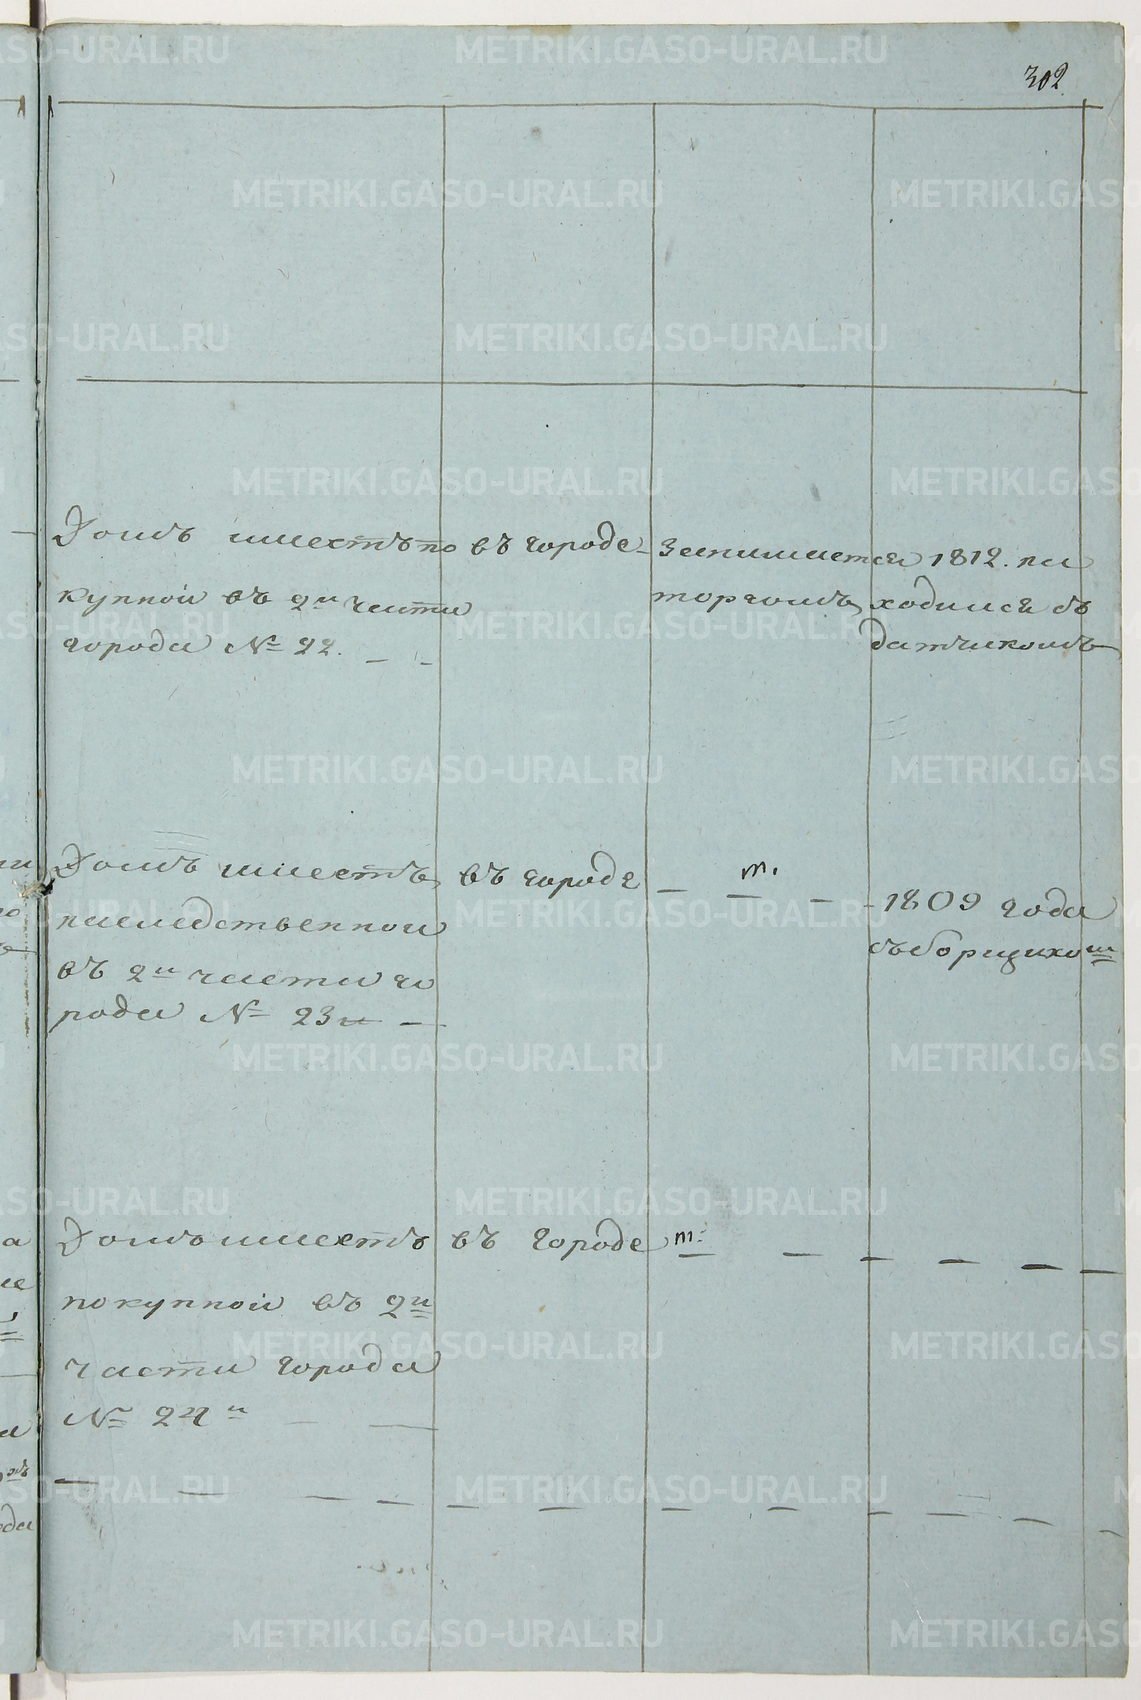 302
Домъ имеетъ по
купной въ 2й части
города № 22.
въ городе
Занимаетса
торгомъ
1812. на
ходился съ
датчикомъ
Домъ имеетъ
наследственной
въ 2й части го
рода № 23й
въ городе
т.
1809 года
съборщиком
Домъ имеетъ
покупной въ 2й
части города
№ 24й
въ городе
т:
METRIKI.GASO-URAL.RU